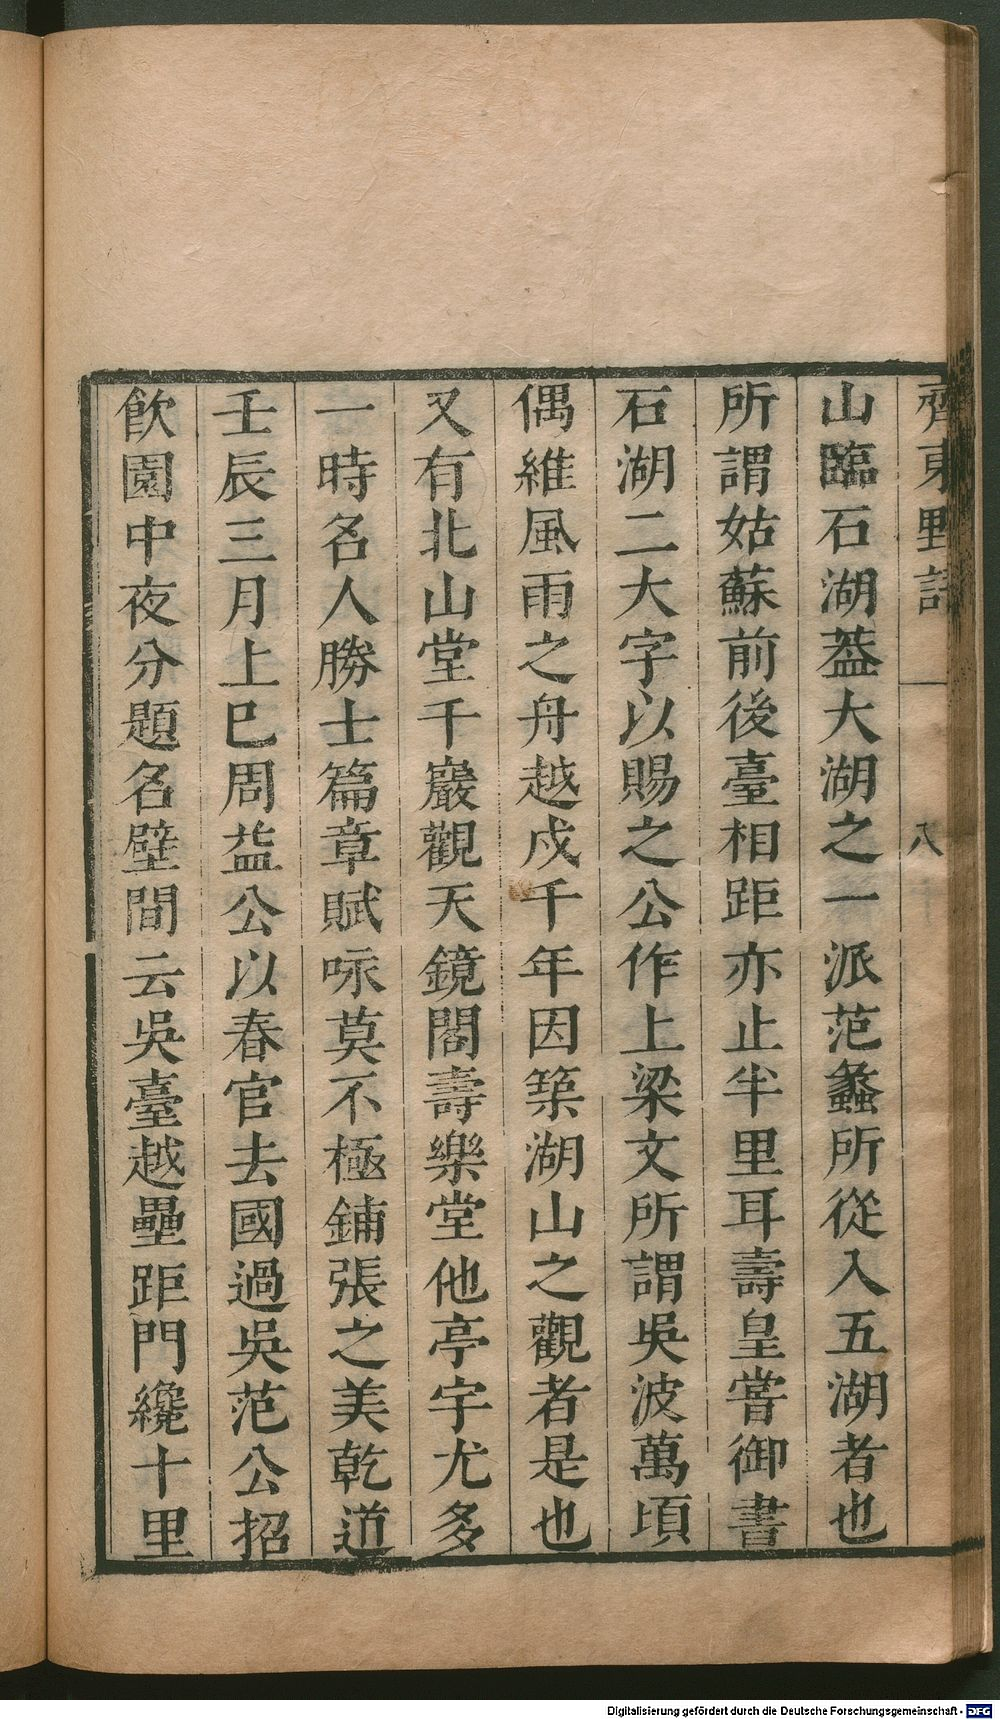 齊東野語
八
山臨石湖葢大湖之一派范蠡所從入五湖者也
所謂姑蘇前後臺相距亦止半里耳壽皇嘗御書
石湖二大字以賜之公作上梁文所謂吳波萬頃
偶維風雨之舟越戍千年因築湖山之觀者是也
又有北山堂千巖觀天鏡閣壽樂堂他亭宇尤多
一時名人勝士篇章賦咏莫不極鋪張之美乾道
壬辰三月上巳周益公以春官去國過吳范公招
飲園中夜分題名壁間云吳臺越壘距門纔十里
Digitalisierung gefördert durch die Deutsche Forschungsgemeinschaft - DFG